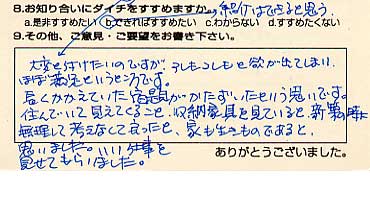 8.お知り合いにダイチをすすめますか。 紹介はできると思う。
a.是非すすめたい b.できればすすめたい c.わからない d.すすめたくない
9.その他、ご意見・ご要望をお書き下さい。
大変と付けたいのですが、アレもコレもと欲が出てしまい、
ほぼ満足というところです。
長くかかえていた宿題がかたずいたという思いです。
住んでいて見えてくること、収納家具を見ていると、新築の時に
無理して考えなくて良かったと、家も生きものであると
思いました。いい仕事を
見せてもらいました。
ありがとうございました。